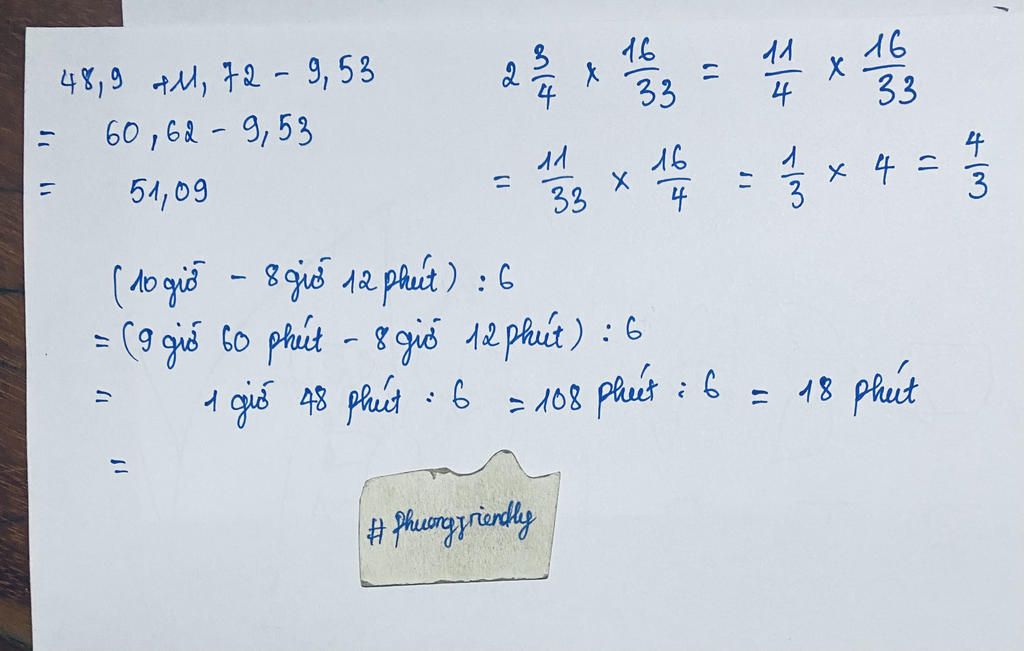 48,9 + 11,72 - 9,53
= 60,62 - 9,53
= 51,09
2 3/4 x 16/33 = 11/4 x 16/33
= 11/33 x 16/4 = 1/3 x 4 = 4/3
(10 giờ - 8 giờ 12 phút) : 6
= (9 giờ 60 phút - 8 giờ 12 phút) : 6
= 1 giờ 48 phút : 6 = 108 phút : 6 = 18 phút
=
# phuongfriendly